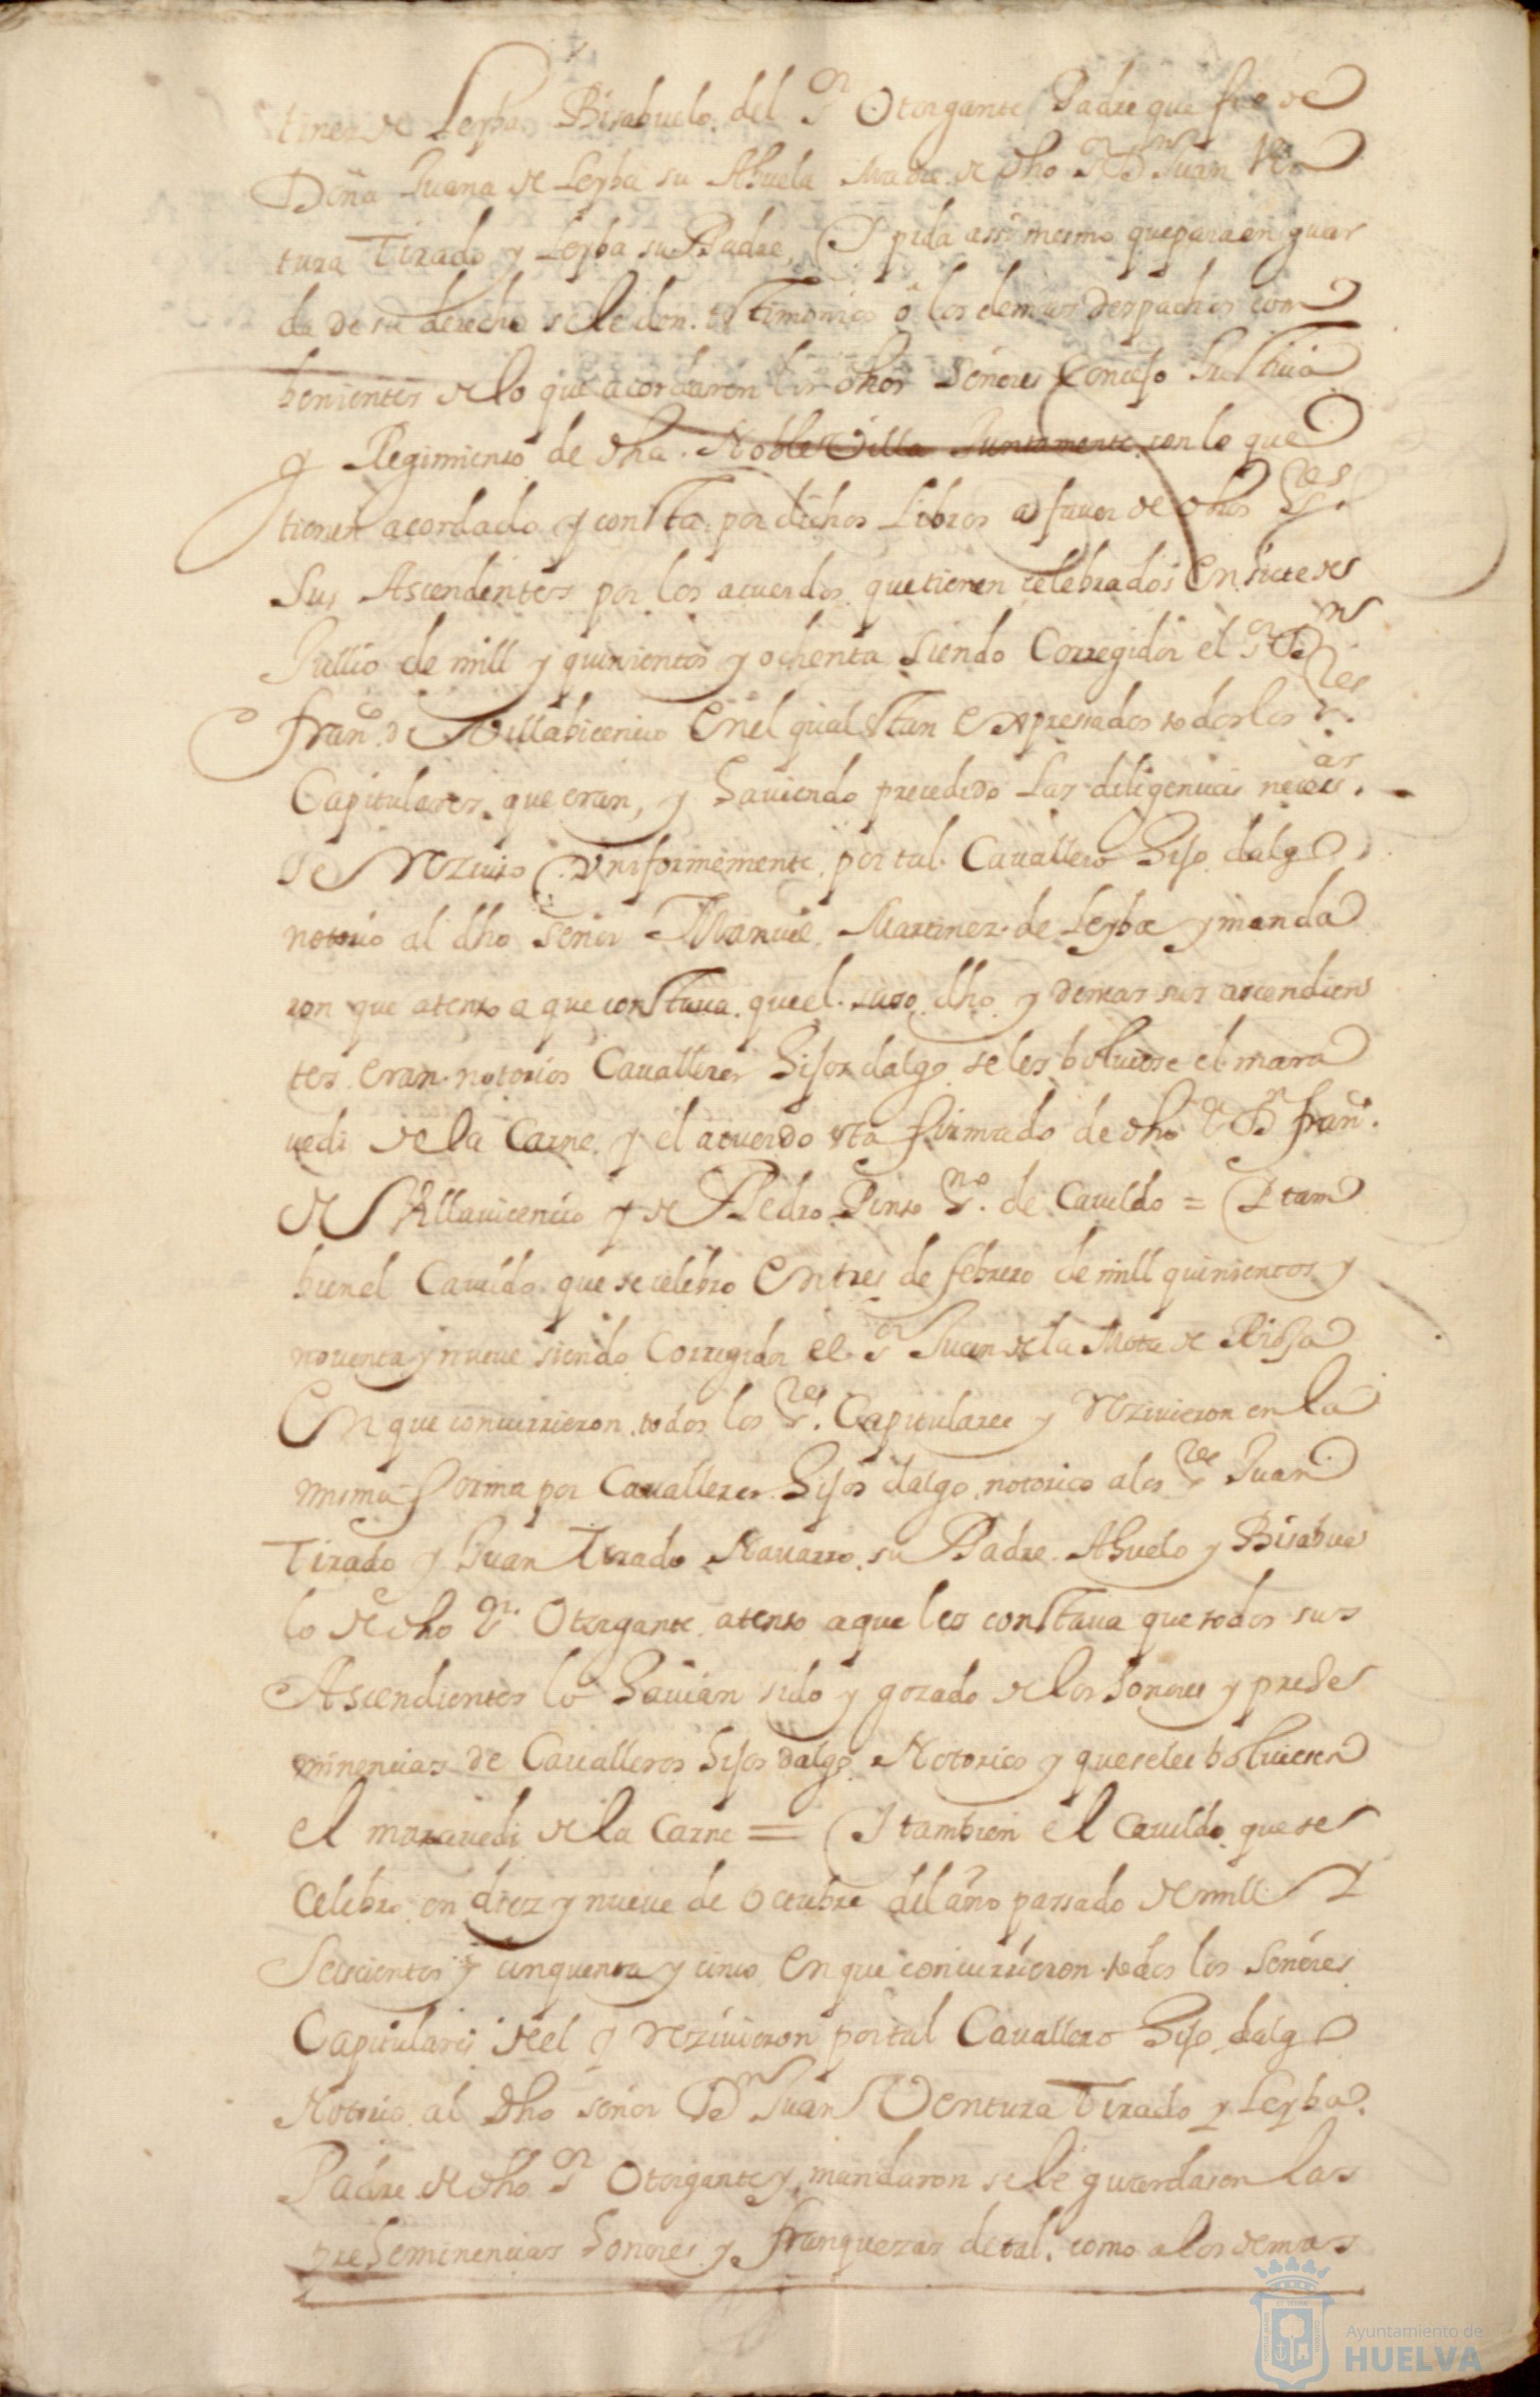 tinez de Leyba Bisabuelo del Sr Otorgante Padre que fue de
Doña Juana de Leyba su Abuela Madre de dho Sr Dn Juan Ven
tura Tirado y Leyba su Padre, Y pida assimesmo que para en guar
da de su derecho se le den testimonios o los demas despachos con
benientes de lo que acordaren los dhos Señores Conceso Justicia
y Regimiento de dha Noble Villa Juntamente con lo que
tienen acordado y consta por dichos Libros a fauor de dhos Sres.
Sus Ascendentes por los acuerdos que tienen celebrados En siete de
Jullio de mill y quinientos y ochenta siendo Corregidor el Sr Dn
Franco de Villabicencio En el qual stan Expressados todos los Sres.
Capitulares que eran, y hauiendo precedido las diligencias necesas.
se Reziuio Vniformemente por tal Cauallero hijo dalgo
notorio al dho señor Manuel Martinez de Leyba y manda
ron que atento a que constaua que el suso dho y demas sus ascendien
tes eran notorios Caualleros hijos dalgo se les boluiese el mara
uedi de la Carne y el acuerdo sta firmado de dho Sr Dn Franco.
de Villauicencio y de Pedro Pinto Sno. de Cauildo = Y tam
bien el Cauildo que se celebro En tres de febrero de mill quinientos y
nouenta y nueve siendo Corregidor el Sr Juan de la Mota de Rioja
En que concurrieron todos los Sres. Capitulares y Rezivieron en la
misma forma por Caualleros hijos dalgo notorios a los Sres Juan
Tirado y Juan Tirado Nauarro su Padre Abuelo y Bisabue
lo de dho Sr. Otorgante atento a que les constaua que todos sus
Ascendientes lo hauian sido y gozado de los honores y prehe
minencias de Caualleros hijos dalgo Notorios y que se les boluiesen
el marauedi de la Carne = Y tambien el Cauildo que se
Celebro en diez y nueue de Octubre del año passado de mill
Seiscientos y cinquenta y cinco En que concurrieron todos los Señores
Capitulares del y Rezivieron por tal Cauallero hijo dalgo
Notorio al dho señor Dn Juan Ventura Tirado y Leyba
Padre de dho Sr Otorgante y mandaron se le guardason las
preheminencias honores y franquezas de tal como a los demas
Ayuntamiento de
HUELVA